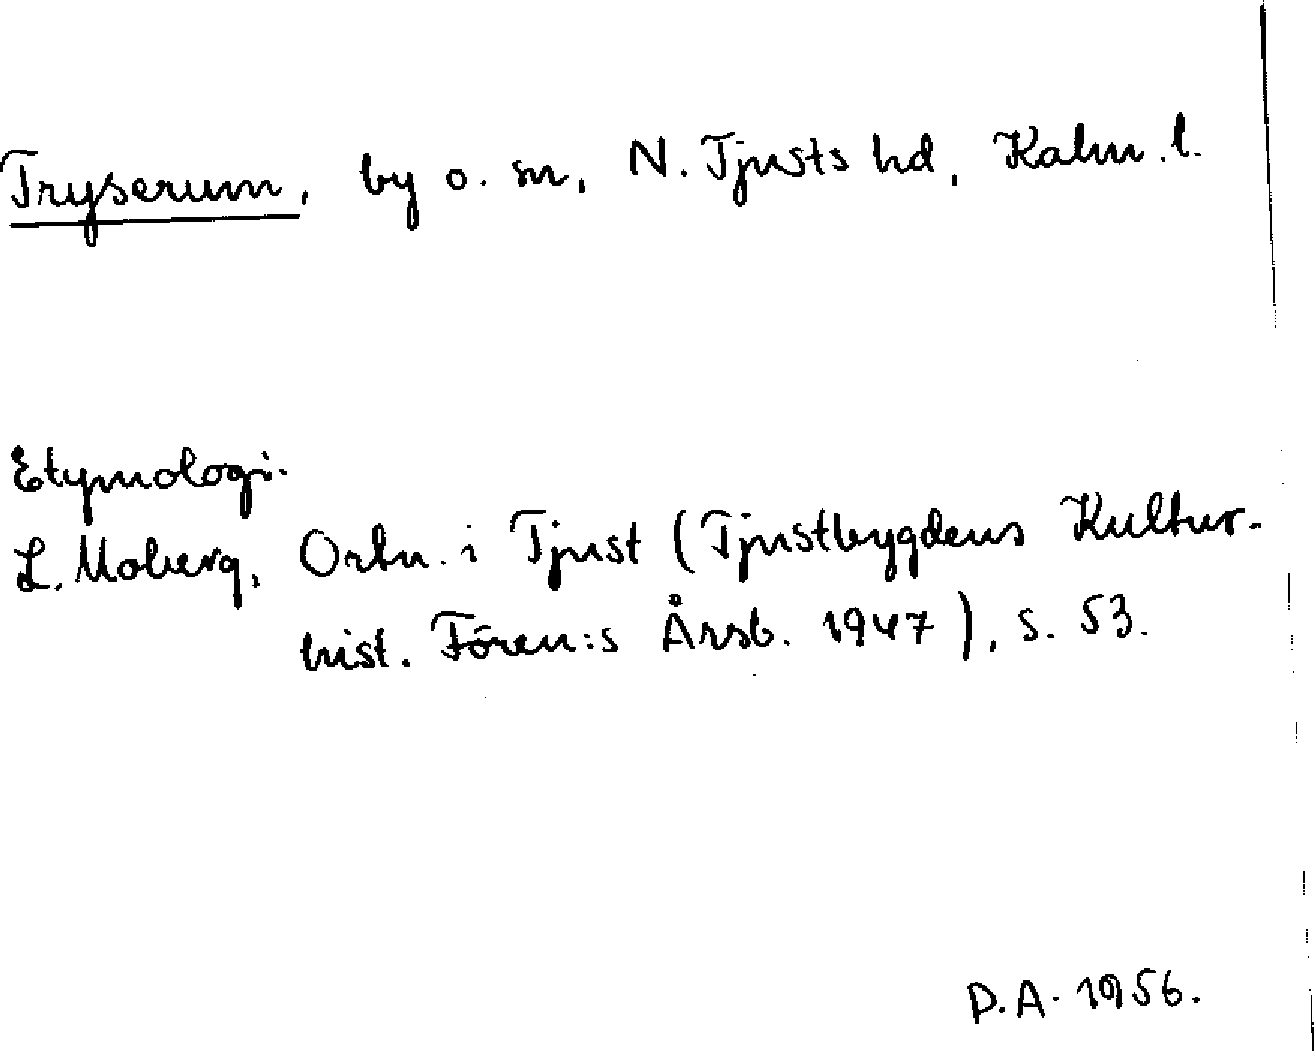 Tryserum, by o. sn, N. Tjusts hd, Kalm. l.
Etymologi.
L. Moberg, Ortn. i Tjust (Tjustbygdens Kultur-
hist. Fören:s Årsb. 1947), s. 53.
D.A. 1956.